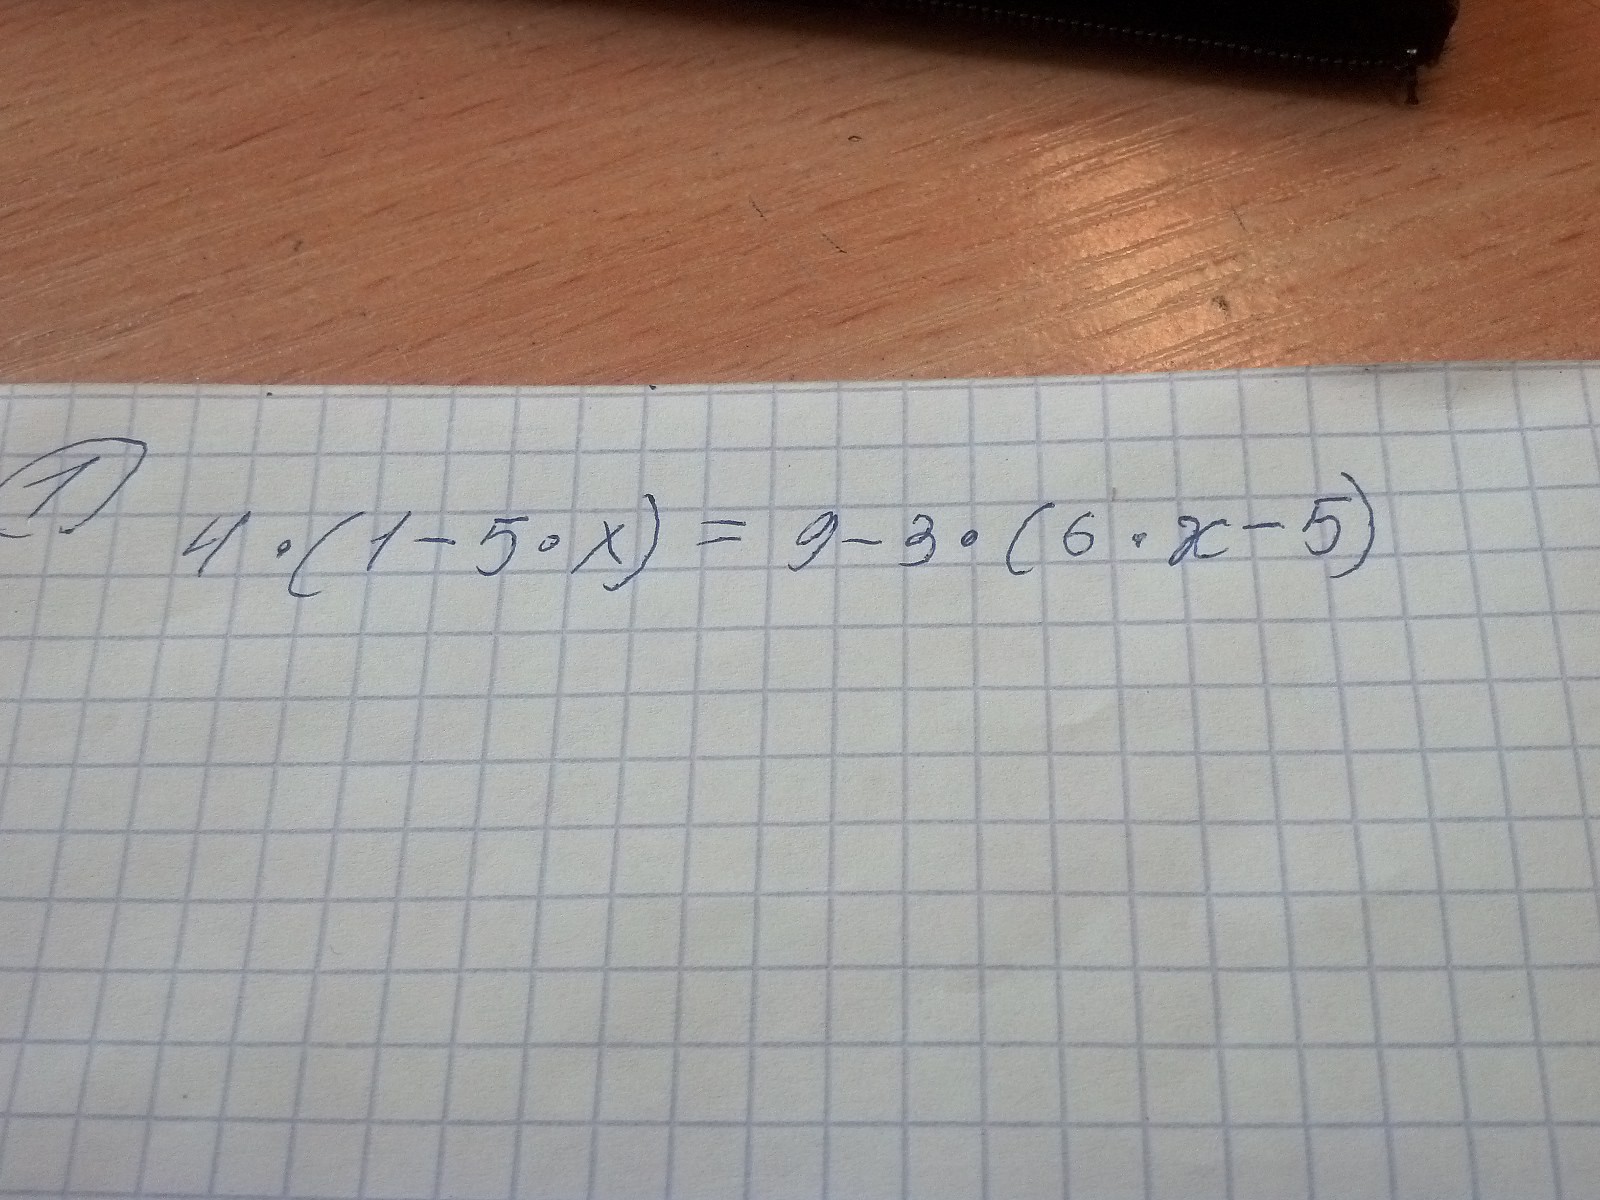 1 4·(1-5·x)=9-3·(6·x-5)